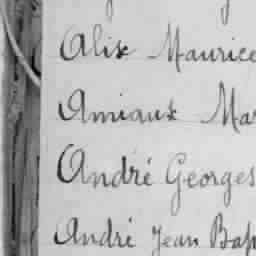 Alix Maurice
Amiaux Mar
André Georges
André Jean Bap